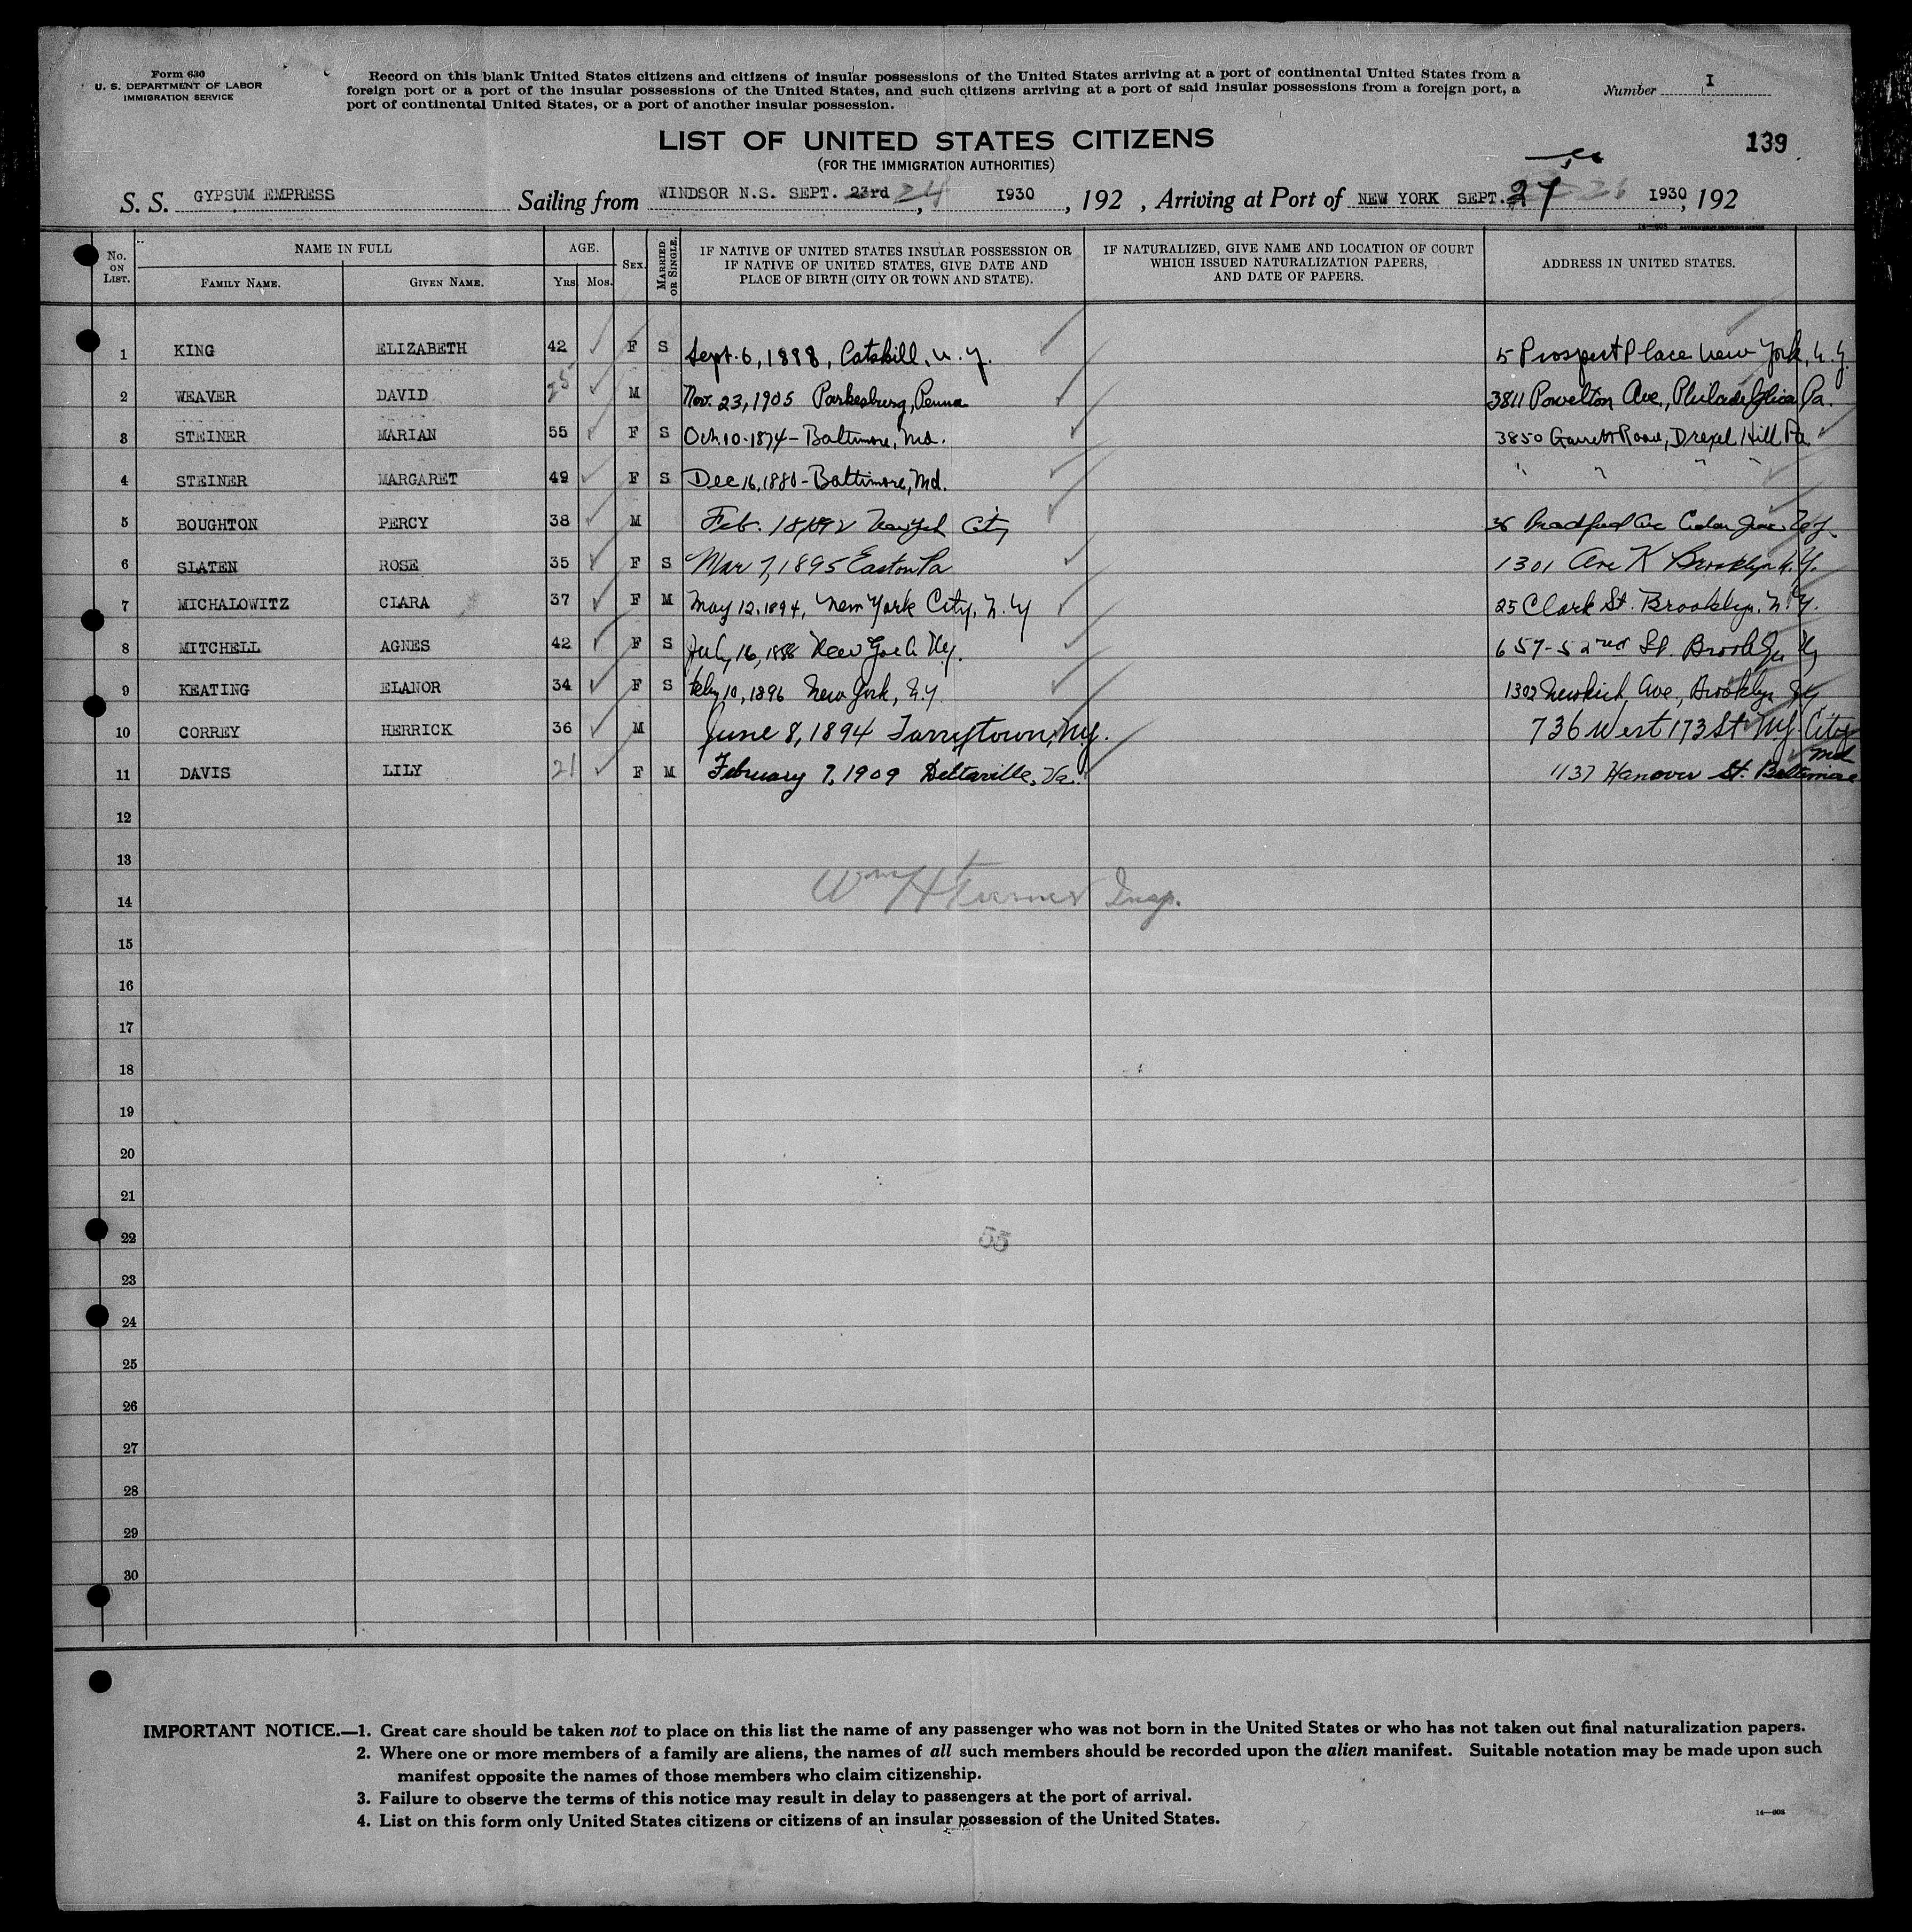 Form 630
U. S. DEPARTMENT OF LABOR
IMMIGRATION SERVICE
Record on this blank United States citizens and citizens of insular possessions of the United States arriving at a port of continental United States from a
foreign port or a port of the insular possessions of the United States, and such citizens arriving at a port of said insular possessions from a foreign port, a
port of continental United States, or a port of another insular possession.
Number I
LIST OF UNITED STATES CITIZENS
139
(FOR THE IMMIGRATION AUTHORITIES)
S. S. GYPSUM EMPRESS Sailing from WINDSOR N.S. SEPT. 23rd 24, 1930, 192 , Arriving at Port of NEW YORK SEPT. 27 26 1930, 192
No. ON LIST.
NAME IN FULL
FAMILY NAME.
GIVEN NAME.
AGE.
YRS. MOS.
SEX.
MARRIED OR SINGLE.
IF NATIVE OF UNITED STATES INSULAR POSSESSION OR
IF NATIVE OF UNITED STATES, GIVE DATE AND
PLACE OF BIRTH (CITY OR TOWN AND STATE).
IF NATURALIZED, GIVE NAME AND LOCATION OF COURT
WHICH ISSUED NATURALIZATION PAPERS,
AND DATE OF PAPERS.
ADDRESS IN UNITED STATES.
1 KING ELIZABETH 42 F S Sept. 6, 1888, Catskill, N.Y. 5 Prospect Place New York, N.Y.
2 WEAVER DAVID 25 M Nov. 23, 1905 Parkesburg, Penna 3811 Powelton Ave., Philadelphia Pa.
3 STEINER MARIAN 55 F S Oct. 10-1874 - Baltimore, Md. 3850 Garrett Road, Drexel Hill Pa
4 STEINER MARGARET 49 F S Dec 16, 1880 - Baltimore, Md. " " " "
5 BOUGHTON PERCY 38 M Feb. 1892 New York City 36 Bradford Ave Cedar Grove N.J.
6 SLATEN ROSE 35 F S Mar 7, 1895 Easton Pa 1301 Ave K Brooklyn N.Y.
7 MICHALOWITZ CLARA 37 F M May 12, 1894, New York City, N.Y 25 Clark St. Brooklyn, N.Y.
8 MITCHELL AGNES 42 F S July 16, 1888 New York Ny. 657-52nd St. Brooklyn Ny
9 KEATING ELANOR 34 F S Feby 10, 1896 New York, N.Y. 1302 Newkirk Ave., Brooklyn NY
10 CORREY HERRICK 36 M June 8, 1894 Tarrytown, N.Y. 736 West 173 St NY City
11 DAVIS LILY 21 F M February 7, 1909 Deltaville, Va. 1137 Hanover St. Baltimore Md
12
13
Wm H Turner Insp.
14
15
16
17
18
19
20
21
22
55
23
24
25
26
27
28
29
30
IMPORTANT NOTICE.—1. Great care should be taken not to place on this list the name of any passenger who was not born in the United States or who has not taken out final naturalization papers.
2. Where one or more members of a family are aliens, the names of all such members should be recorded upon the alien manifest. Suitable notation may be made upon such
manifest opposite the names of those members who claim citizenship.
3. Failure to observe the terms of this notice may result in delay to passengers at the port of arrival.
4. List on this form only United States citizens or citizens of an insular possession of the United States.
14—608